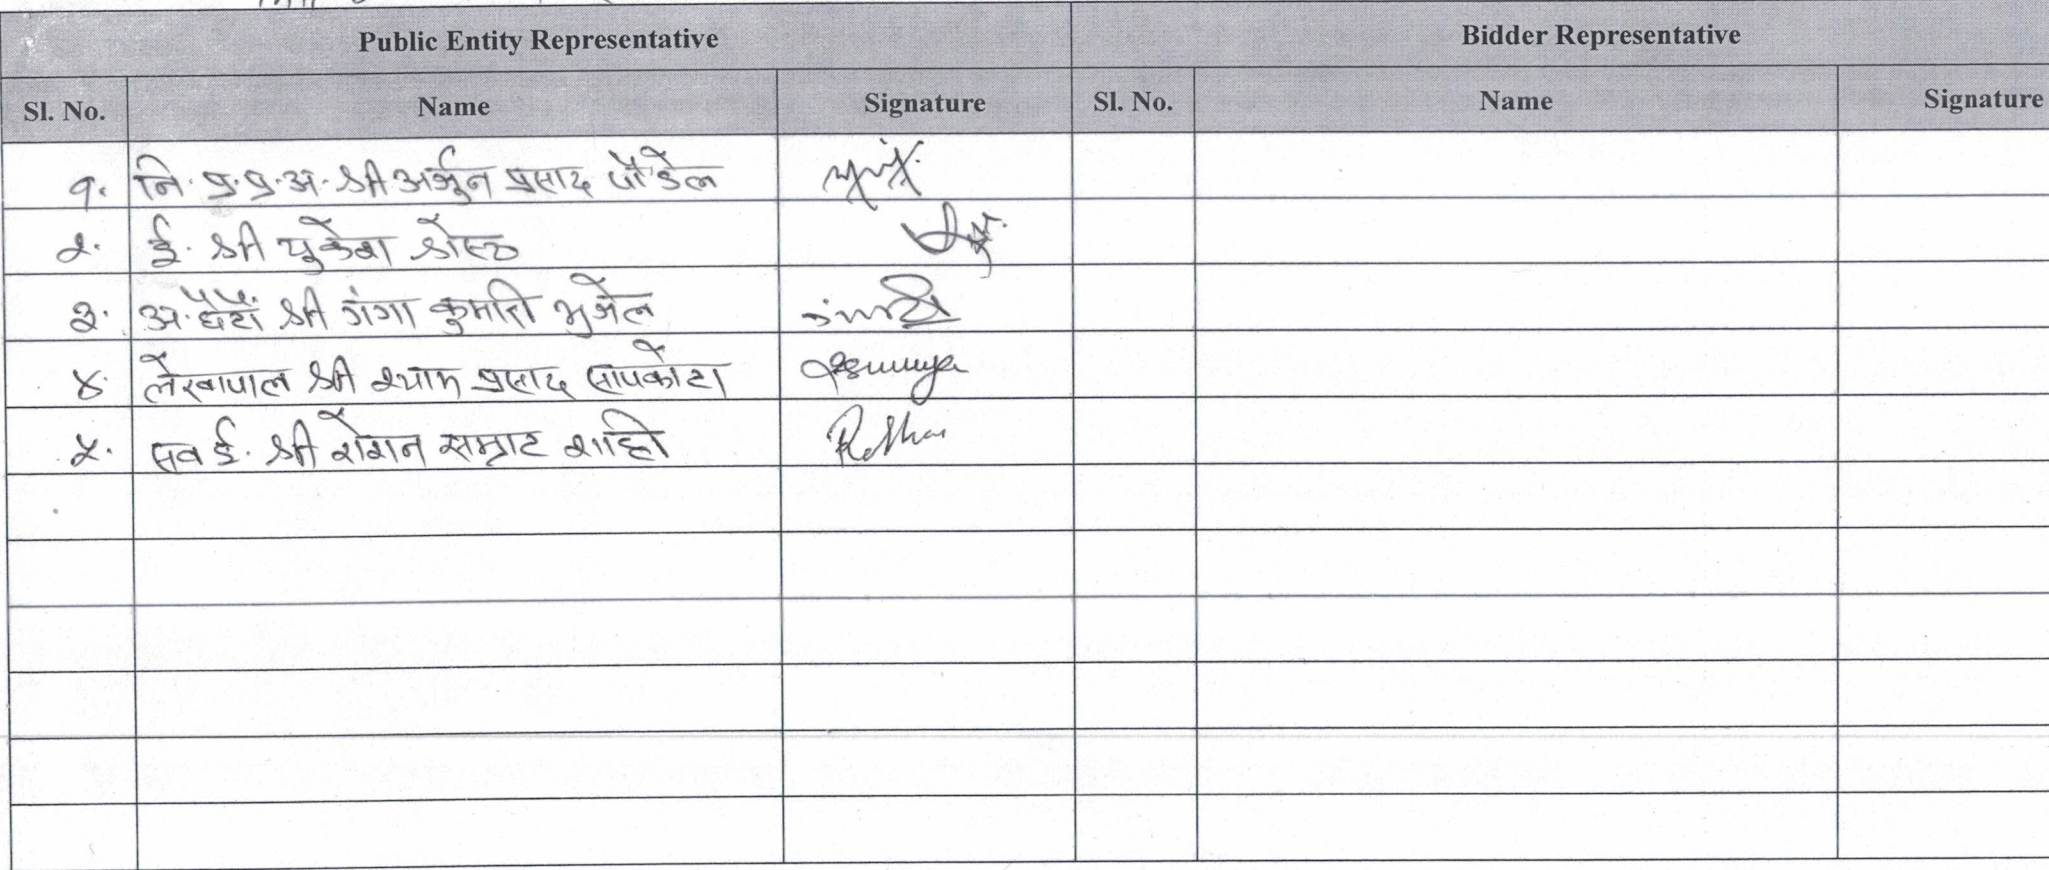 Public Entity Representative Bidder Representative
Sl. No. Name Signature Sl. No. Name Signature
१. नि. प्र. प्र. अ. श्री अर्जुन प्रसाद पौडेल
२. ई. श्री युकेश श्रेष्ठ
३. अ. श्री गंगा कुमारी भुजेल
४. लेखापाल श्री श्याम प्रसाद सापकोटा
५. सव ई. श्री रोशन सम्राट शाही